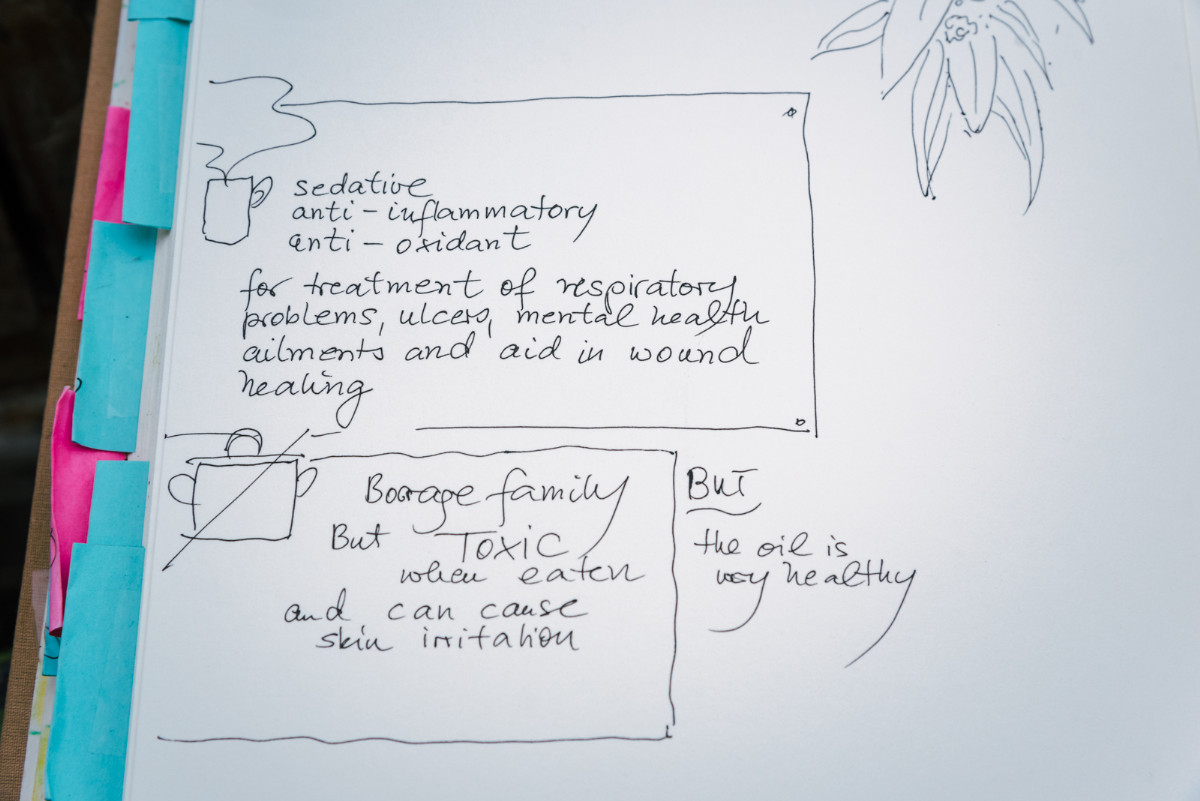 sedative
anti-inflammatory
anti-oxidant
for treatment of respiratory
problems, ulcers, mental health
ailments and aid in wound
healing
Borage family
But TOXIC
when eaten
and can cause
skin irritation
BUT
the oil is
very healthy